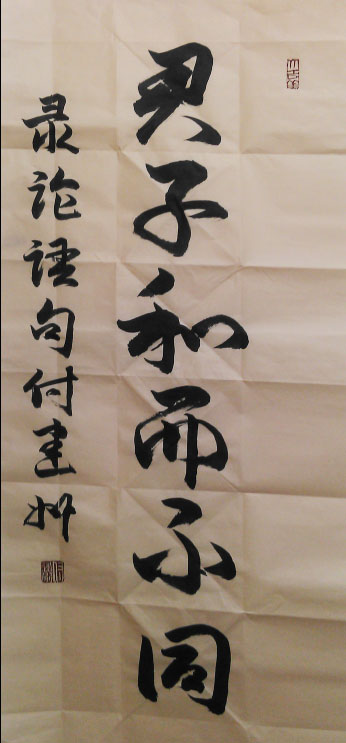 君子和而不同
录论语句付建州